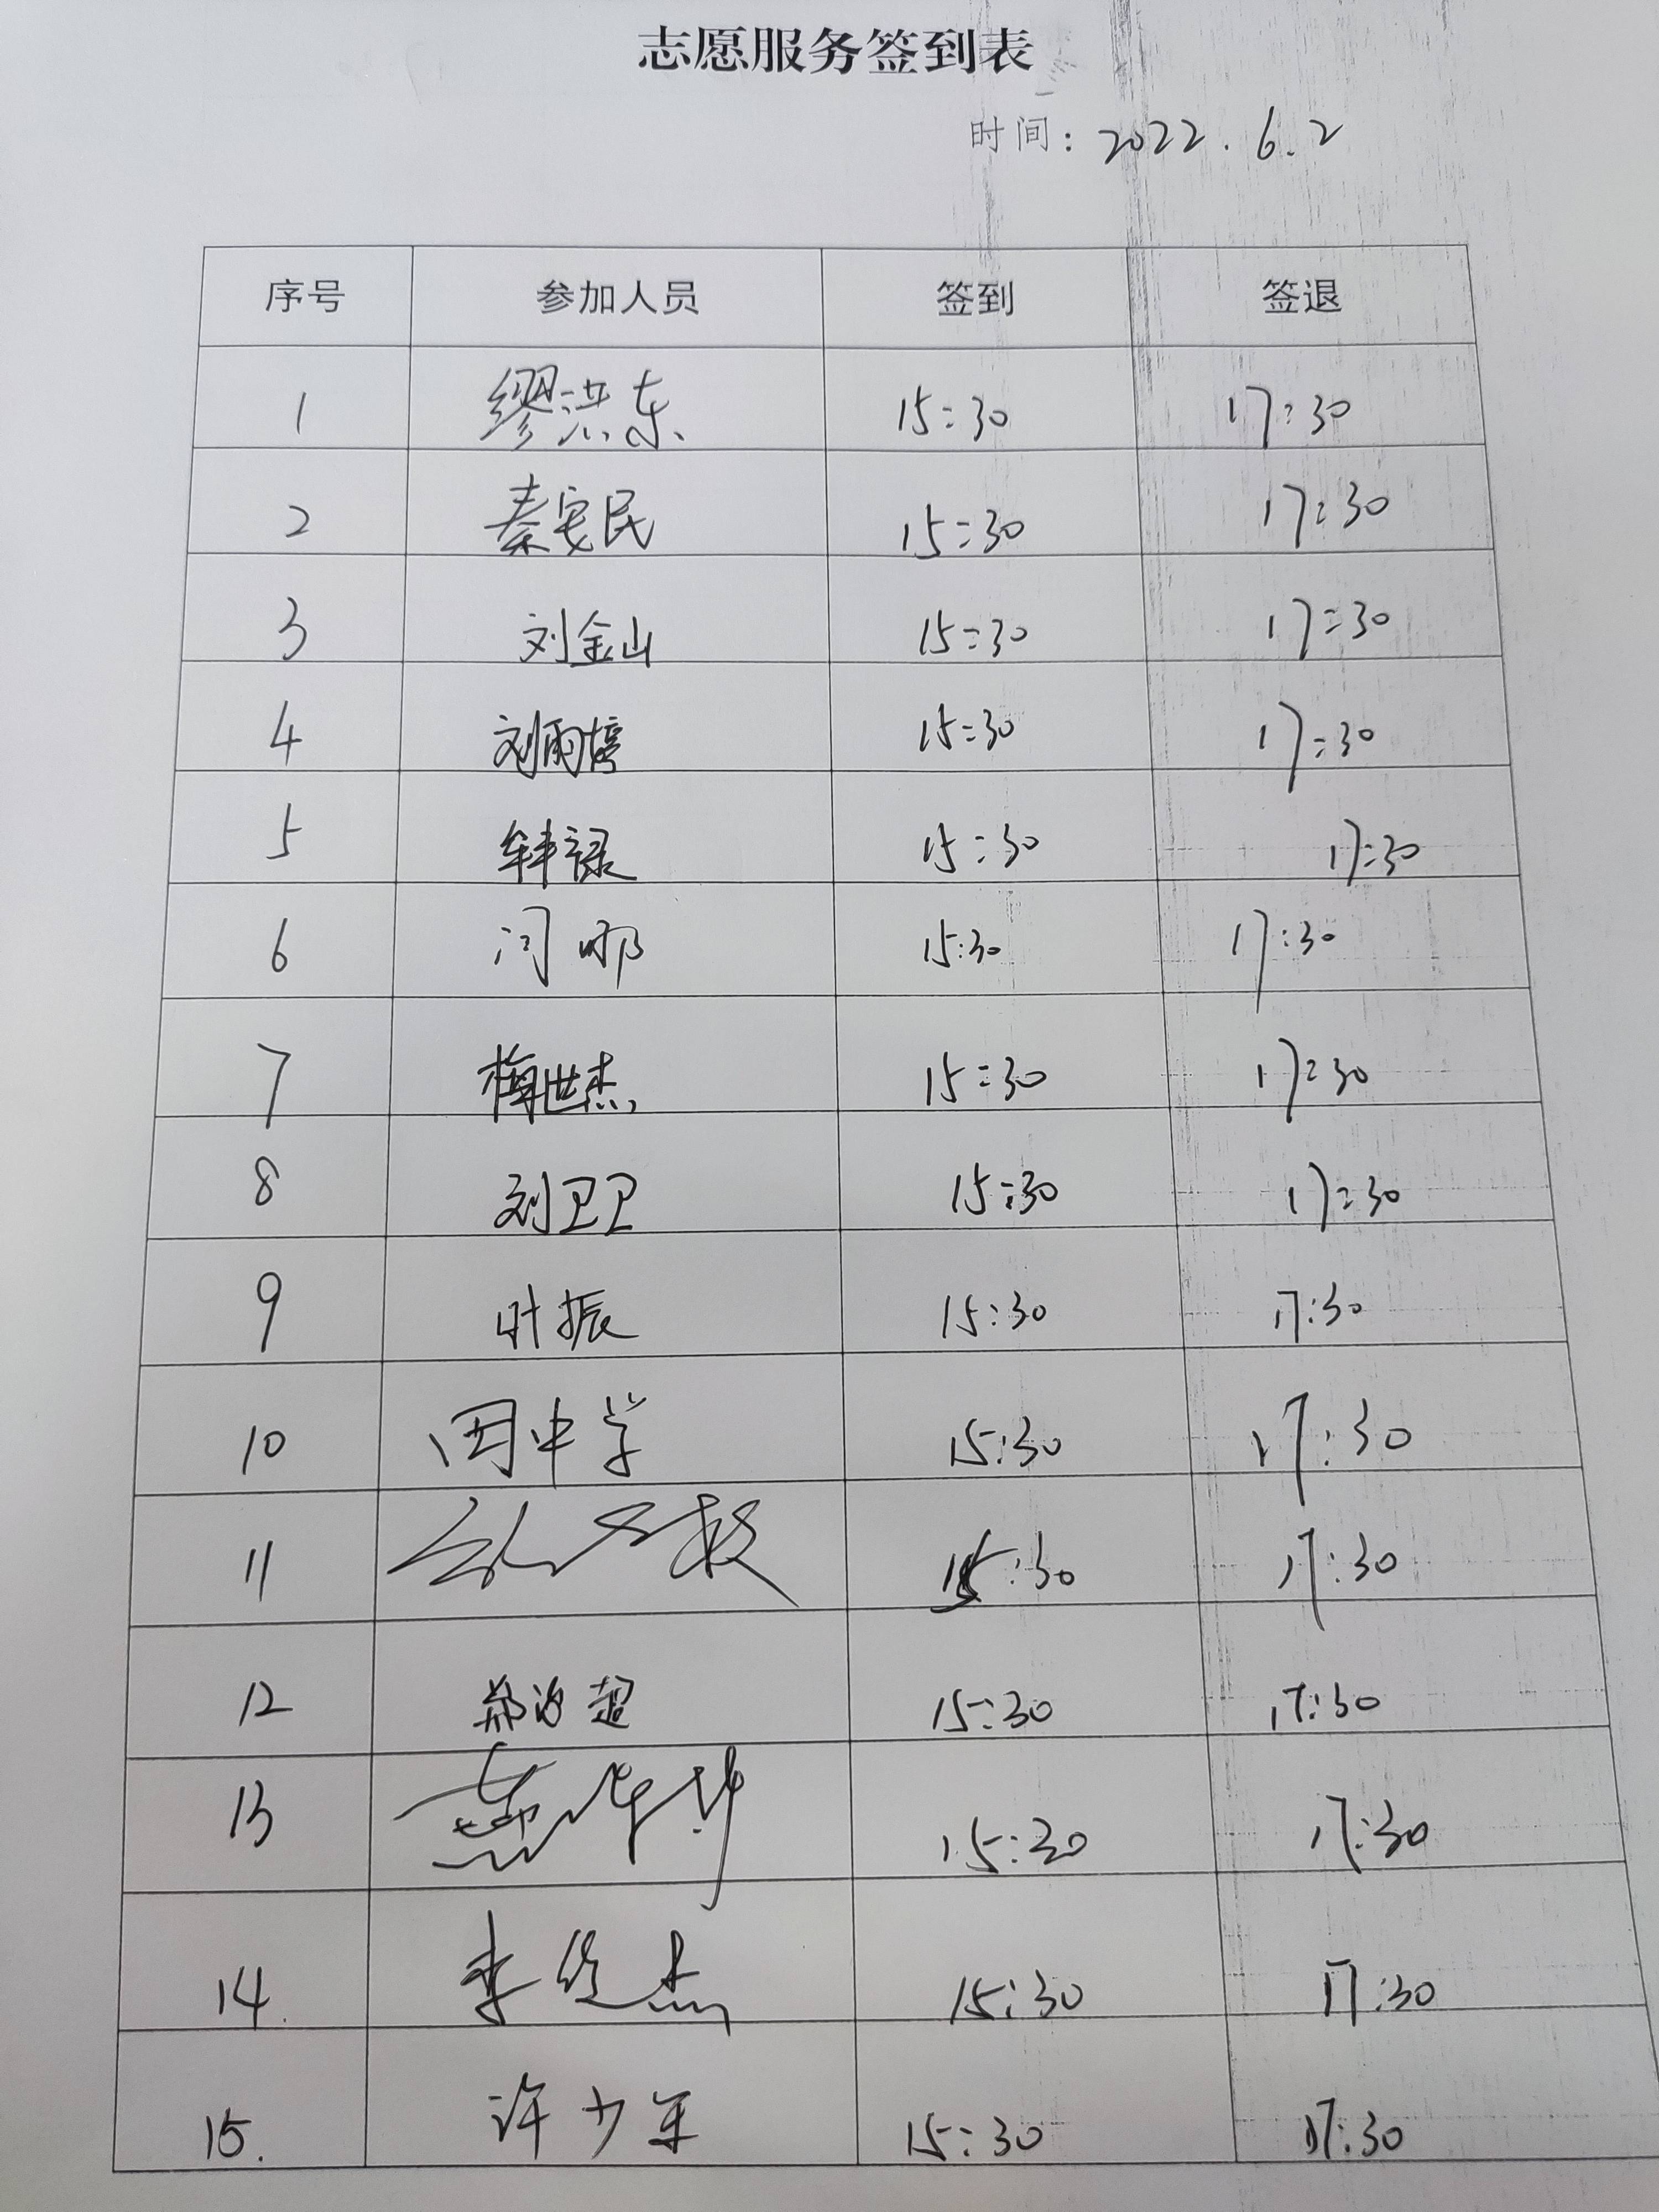 志愿服务签到表
时间: 2022.6.2
序号 参加人员 签到 签退
1 缪洪东 15:30 17:30
2 秦安民 15:30 17:30
3 刘金山 15:30 17:30
4 刘雨婷 15:30 17:30
5 15:30 17:30
6 闫娜 15:30 17:30
7 梅世杰 15:30 17:30
8 刘卫卫 15:30 17:30
9 叶振 15:30 17:30
10 田中学 15:30 17:30
11 15:30 17:30
12 15:30 17:30
13 15:30 17:30
14. 李俊杰 15:30 17:30
15. 许少军 15:30 17:30